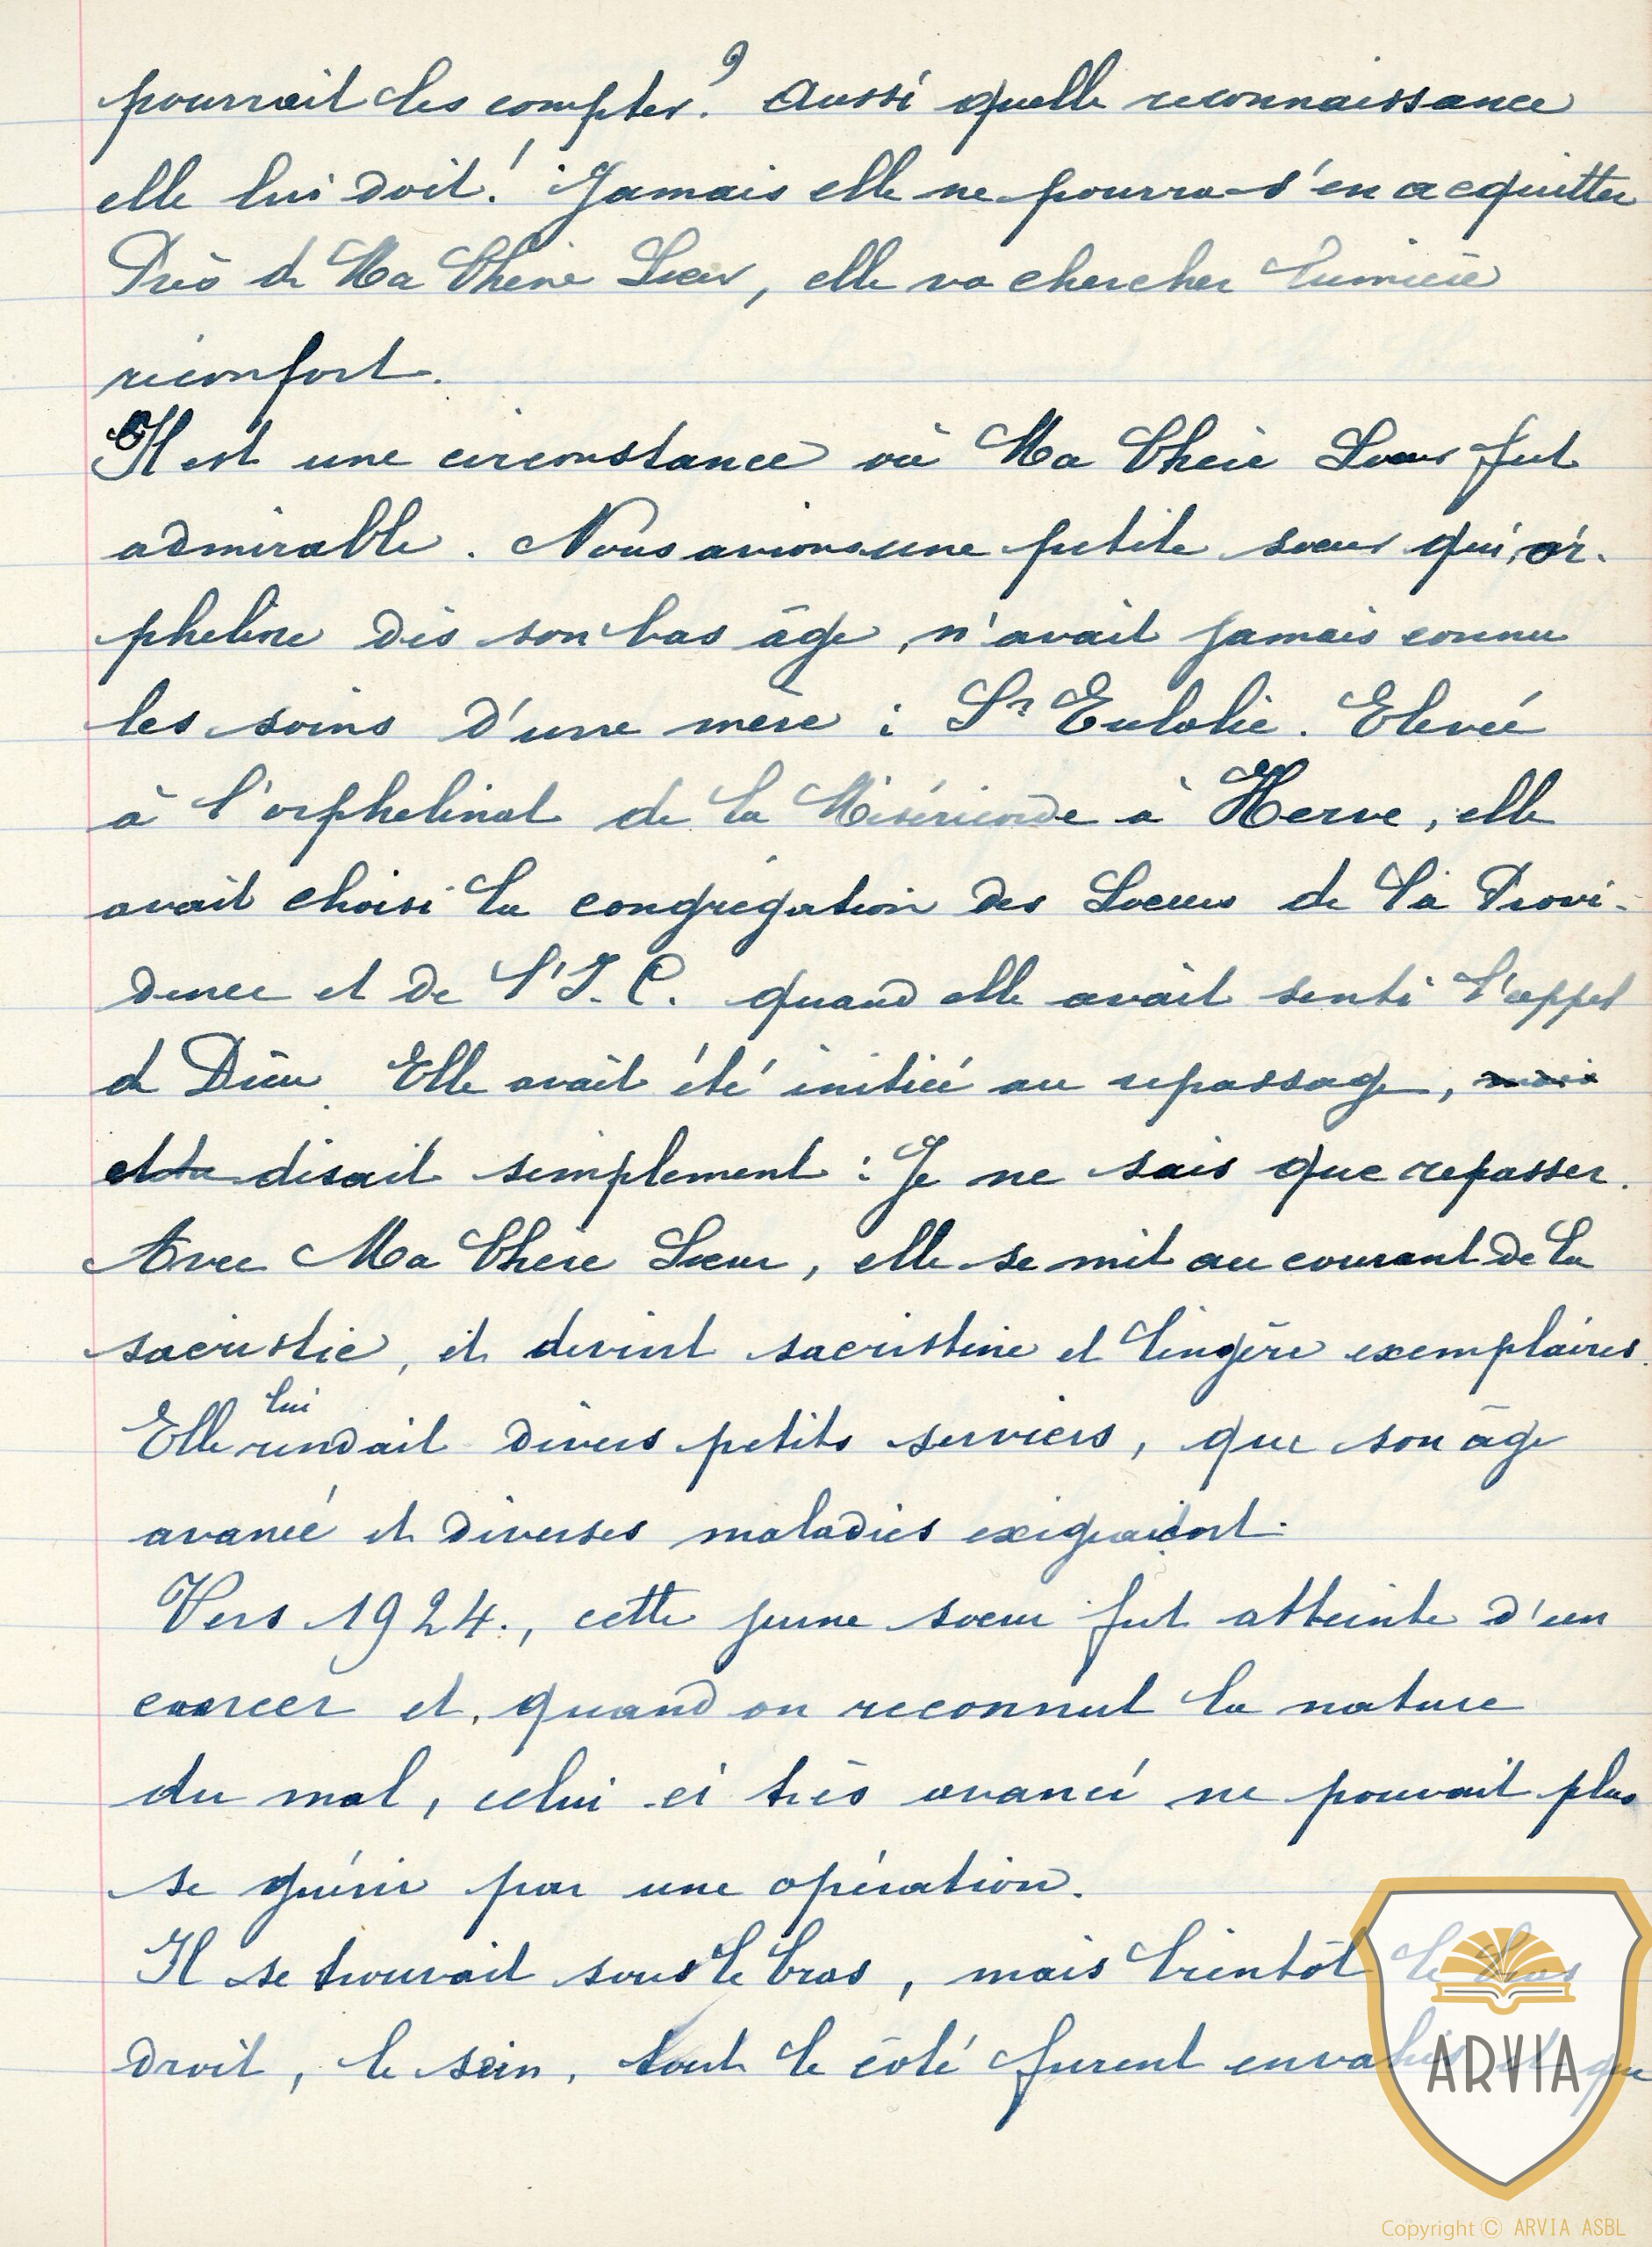 pourrait les compter ? Aussi quelle reconnaissance
elle lui doit ! Jamais elle ne pourra s'en acquitter
Près de Ma Chère Sœur, elle va chercher lumière
réconfort.
Il est une circonstance où Ma Chère Sœur fut
admirable. Nous avions une petite sœur qui, or-
pheline dès son bas âge, n'avait jamais connu
les soins d'une mère : Sr Eulalie. Elevée
à l'orphelinat de la Miséricorde à Herve, elle
avait choisi la congrégation des Sœurs de la Provi-
dence et de l'I. C. quand elle avait senti l'appel
de Dieu Elle avait été initiée au repassage, mais
et disait simplement : Je ne sais que repasser.
Avec Ma Chère Sœur, elle se mit au courant de la
sacristie, et devint sacristine et lingère exemplaires.
lui
Elle rendait divers petits services, que son âge
avancé et diverses maladies exigeaient.
Vers 1924., cette jeune sœur fut atteinte d'un
cancer et, quand on reconnut la nature
du mal, celui ci très avancé ne pouvait plus
se guérir par une opération.
Il se trouvait sous le bras, mais bientôt le bras
droit, le sein, tout le côté furent envahis et que
ARVIA
Copyright © ARVIA ASBL